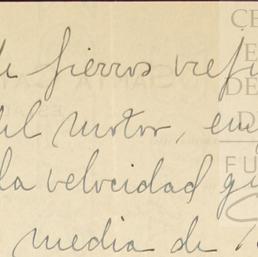 de fierros
del motor, en
la velocidad
media de
CE
E
DE
D
FU